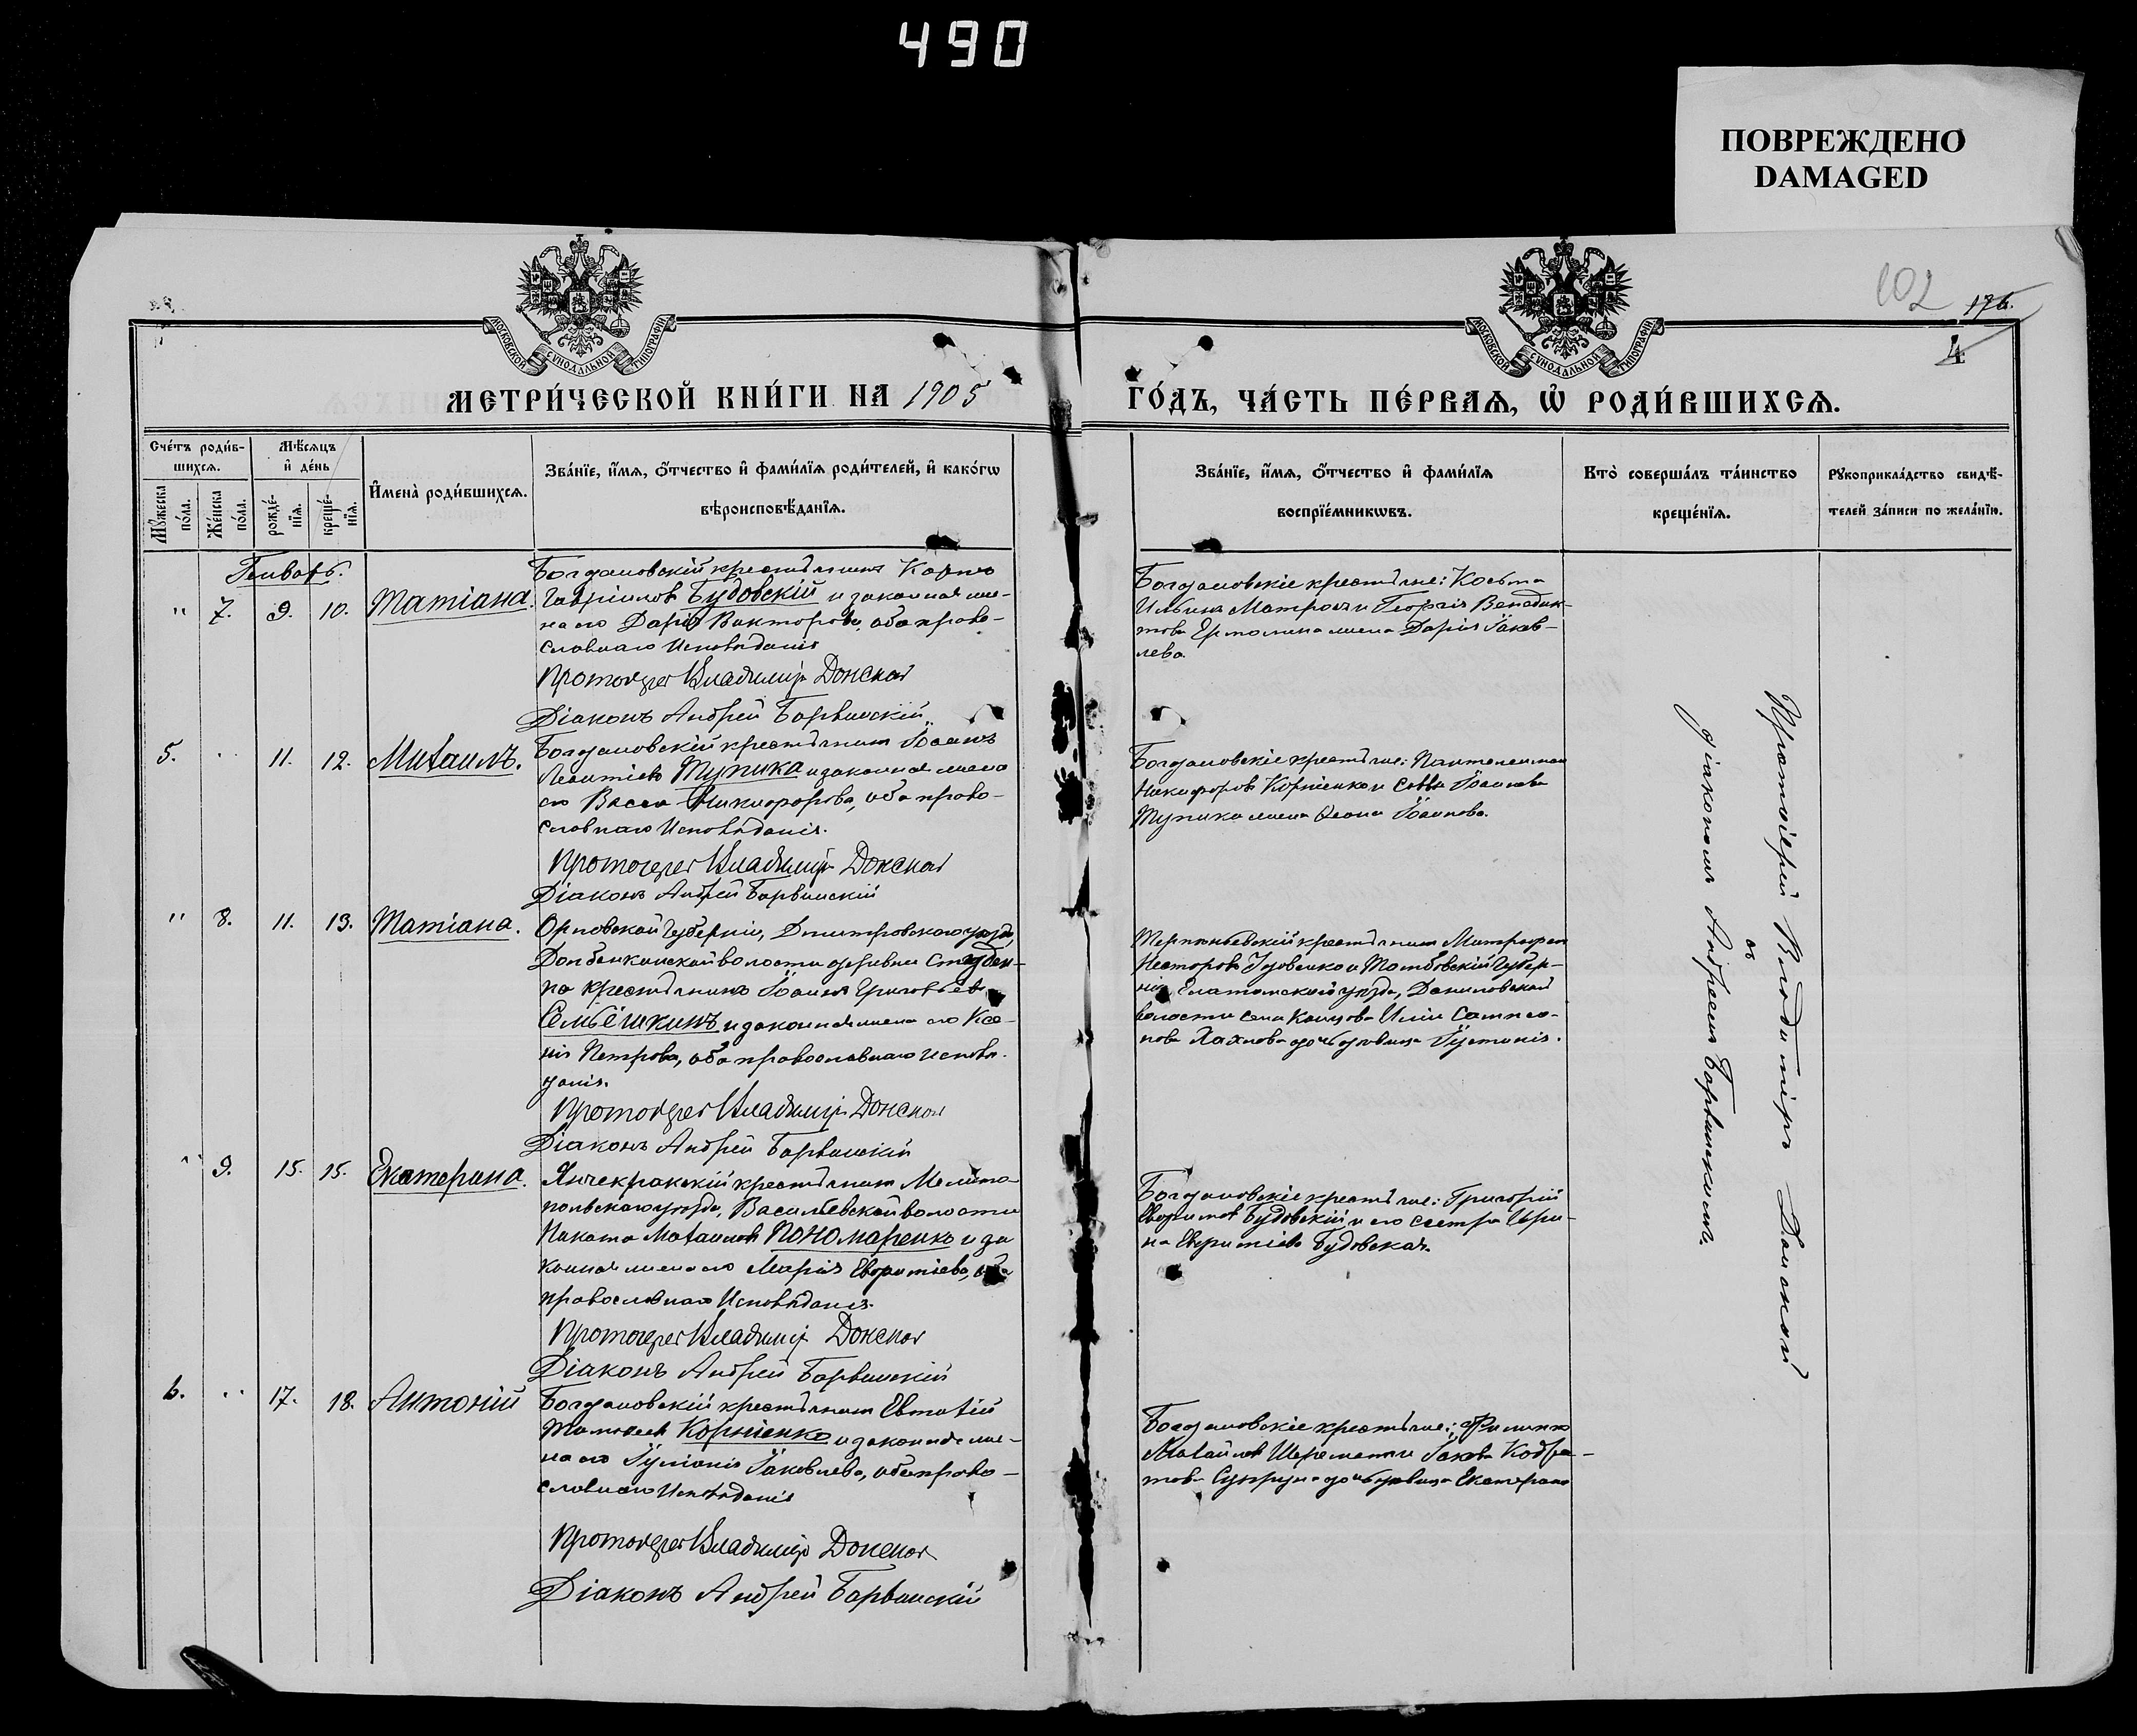 490
ПОВРЕЖДЕНО
DAMAGED
102 176.
4
МОСКОВСКОЙ СѴНОДАЛЬНОЙ ТИПОГРАФІИ
МОСКОВСКОЙ СѴНОДАЛЬНОЙ ТИПОГРАФІИ
МЕТРИ́ЧЕСКОЙ КНИ́ГИ НА 1905
ГО́ДЪ, ЧА́СТЬ ПЕ́РВАѦ, Ѡ҆ РОДИ́ВШИХСѦ.
Сче́тъ роди́в-
шихсѧ.
Мꙋ́жеска по́ла.
Же́нска по́ла.
Мѣ́сѧцъ
и҆ де́нь
рожде́-
нїѧ.
креще́-
нїѧ.
И҆мена̀ роди́вшихсѧ.
Зва́нїе, и҆́мѧ, ѻ҆́тчество и҆ фами́лїѧ роди́телей, и҆ како́гѡ
вѣроисповѣ́данїѧ.
Зва́нїе, и҆́мѧ, ѻ҆́тчество и҆ фами́лїѧ
воспрїе́мникѡвъ.
Кто̀ соверша́лъ та́инство
креще́нїѧ.
Рꙋкоприкла́дство свидѣ́-
телей за́писи по жела́нїю.
Генварь.
" 7. 9. 10. Татіана.
Богдановскій крестьянинъ Карпъ
Гавріиловъ Будовскій и законная же-
на его Дарія Викторова, оба право-
славнаго Исповѣданія
Протоіерей Владиміръ Донской
Діаконъ Андрей Барвинскій
Богдановскіе крестьяне: Косьма
Ильинъ Матрош и Георгія Венедик-
това Ермолина жена Дарія Іаков-
лева.
5. " 11. 12. Михаилъ.
Богдановскій крестьянинъ Іоаннъ
Леонтіевъ Тупика и законная жена
его Васса Никифорова, оба право-
славнаго Исповѣданія.
Протоіерей Владиміръ Донской
Діаконъ Андрей Барвинскій
Богдановскіе крестьяне: Пантелеимон
Никифоровъ Корніенко и Саввы Іоаннова
Тупика жена Іоаннова.
" 8. 11. 13. Татіана.
Орловской губерніи, Дмитровскаго уѣзда,
волости деревни Студен-
ка крестьянинъ Іоаннъ Григорьевъ
Семёшкинъ и законная жена его Ксе-
нія Петрова, оба православнаго исповѣ-
данія.
Протоіерей Владиміръ Донской
Діаконъ Андрей Барвинскій
Терпѣньевскій крестьянинъ Митрофан
Несторовъ и Тамбовскій губер-
ніи, Елатомскаго уѣзда, Даниловской
волости села Илiи Сампсо-
нова дочь дѣвица Іустинія.
" 9. 15. 15. Екатерина.
Янчекракскій крестьянинъ Мелито-
польскаго уѣзда, Васильевской волости
Никита Михаиловъ Пономаренко и за
конная жена его Марія Евфиміева, оба
православнаго Исповѣданія.
Протоіерей Владиміръ Донской
Діаконъ Андрей Барвинскій
Богдановскіе крестьяне: Григорій
Евфиміевъ Будовскій и его сестра Ири-
на Евфиміева Будовская.
6. " 17. 18. Антоній
Богдановскій крестьянинъ Евтихій
Тимофеевъ Корніенко и законная же-
на его Іуліанія Іаковлева, оба право-
славнаго Исповѣданія
Протоіерей Владиміръ Донской
Діаконъ Андрей Барвинскій
Богдановскіе крестьяне: Филиппъ
Михайловъ Шеремет и Іакова Кодра-
това Супруна дочь дѣвица Екатерина
Протоіерей Владиміръ Донской
съ
діакономъ Андреемъ Барвинскимъ.